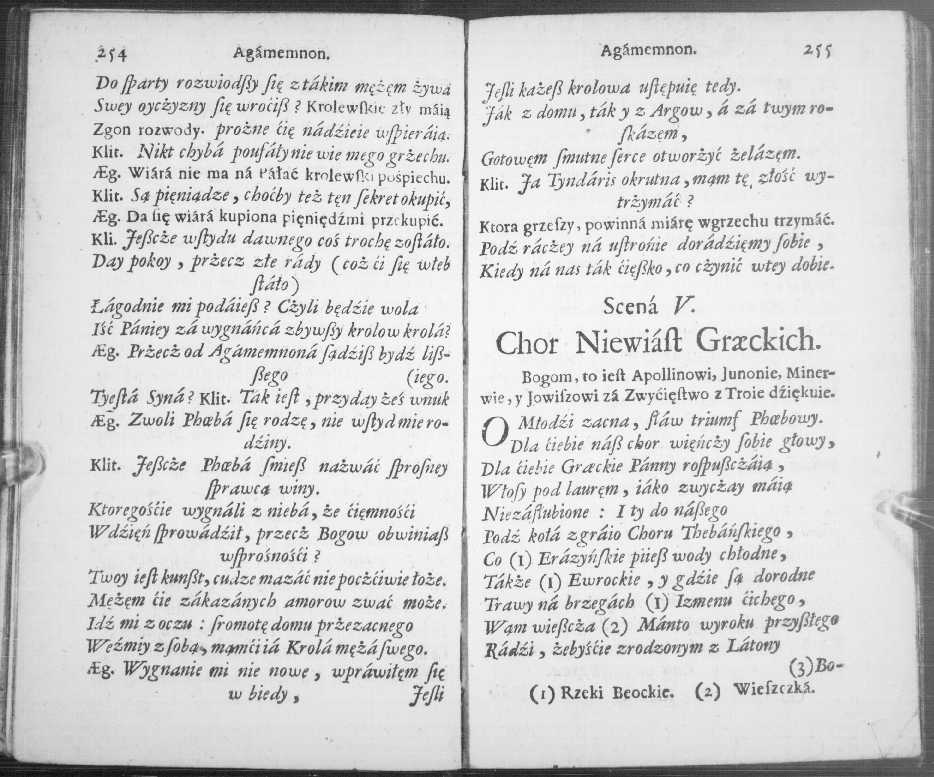 254 Agámemnon.
Do ſpárty rozwiodſßy ſię z tákim mężęm żywą
Swey oyczyzny ſię wroćiß ? Krolewſkie zły máią
Zgon rozwody. prożne ćię nádźieie wſpieráią.
Klit. Nikt chybá poufáły nie wie mego grżechu.
Æg. Wiárá nie ma ná Páłác krolewſki poſpiechu.
Klit. Są pięniądze , choćby też tęn ſekret okupić,
Æg. Da ſię wiárá kupiona pięniędźmi przekupić.
Kli. Jeßcże wſtydu dawnego coś trochę zoſtáło.
Day pokoy , przecz złe rády (coż ći ſię włeb
ſtáło)
Łágodnie mi podáieß ? Cżyli będźie wola
Iść Pániey zá wygnáńcá zbywßy krolow krolá?
Æg. Przecż od Agámemnoná ſądźiß bydź liß-
ßego (iego.
Tyeſtá Syná ? Klit. Tak ieſt , przyday żeś wnuk
Æg. Zwoli Phœbá ſię rodzę, nie wſtyd mie ro-
dźiny.
Klit. Jeßcże Phœbá ſmieß nażwáć ſproſney
ſprawcą winy.
Ktoregośćie wygnáli z niebá, że ćięmnośći
Wdźięń ſprowádźił, przecż Bogow obwiniaß
wſprośnośći ?
Twoy ieſt kunßt, cudze mazáć nie pocżćiwie łoże.
Mężęm ćie zákazánych amorow zwać może.
Idź mi z oczu : ſromotę domu przezacnego
Weźmiy z ſobą, mąm ći iá Krolá mężá ſwego.
Æg. Wygnanie mi nie nowe , wpráwiłęm ſię
w biedy , Jeſli
Agámemnon. 255
Jeſli każeß krolowa uſtępuię tedy.
Ják z domu, ták y z Argow, á zá twym ro-
ſkázęm,
Gotowęm ſmutne ſerce otworżyć żelázęm.
Klit. Ja Tyndáris okrutna, mąm tę złość wy-
trżymáć ?
Ktora grzeſzy, powinná miárę wgrzechu trzymáć.
Podź ráczey ná uſtrońie dorádźięmy ſobie ,
Kiedy ná nas ták ćięßko, co cżynić wtey dobie.
Scená V.
Chor Niewiáſt Græckich.
Bogom, to ieſt Apollinowi, Junonie, Miner-
wie, y Jowiſzowi zá Zwyćięſtwo z Troie dźiękuie.
O Młodźi zacna, ſław triumf Phœbowy.
Dla ćiebie náß chor więńcży ſobie głowy,
Dla ćiebie Græckie Pánny roſpußcżáią ,
Włoſy pod lauręm, iáko zwycżay máią
Niezáſlubione : I ty do náßego
Podź kołá zgráio Choru Thebáńſkiego ,
Co (1) Erázyńſkie piieß wody chłodne,
Tákże (1) Ewrockie , y gdźie ſą dorodne
Trawy ná brzegách (1) Izmenu ćichego,
Wąm wießcża (2) Mánto wyroku przyßłego
Rádźi , żebyśćie zrodzonym z Látony
(3) Bo-
(1) Rzeki Beockie. (2) Wieſzczká.